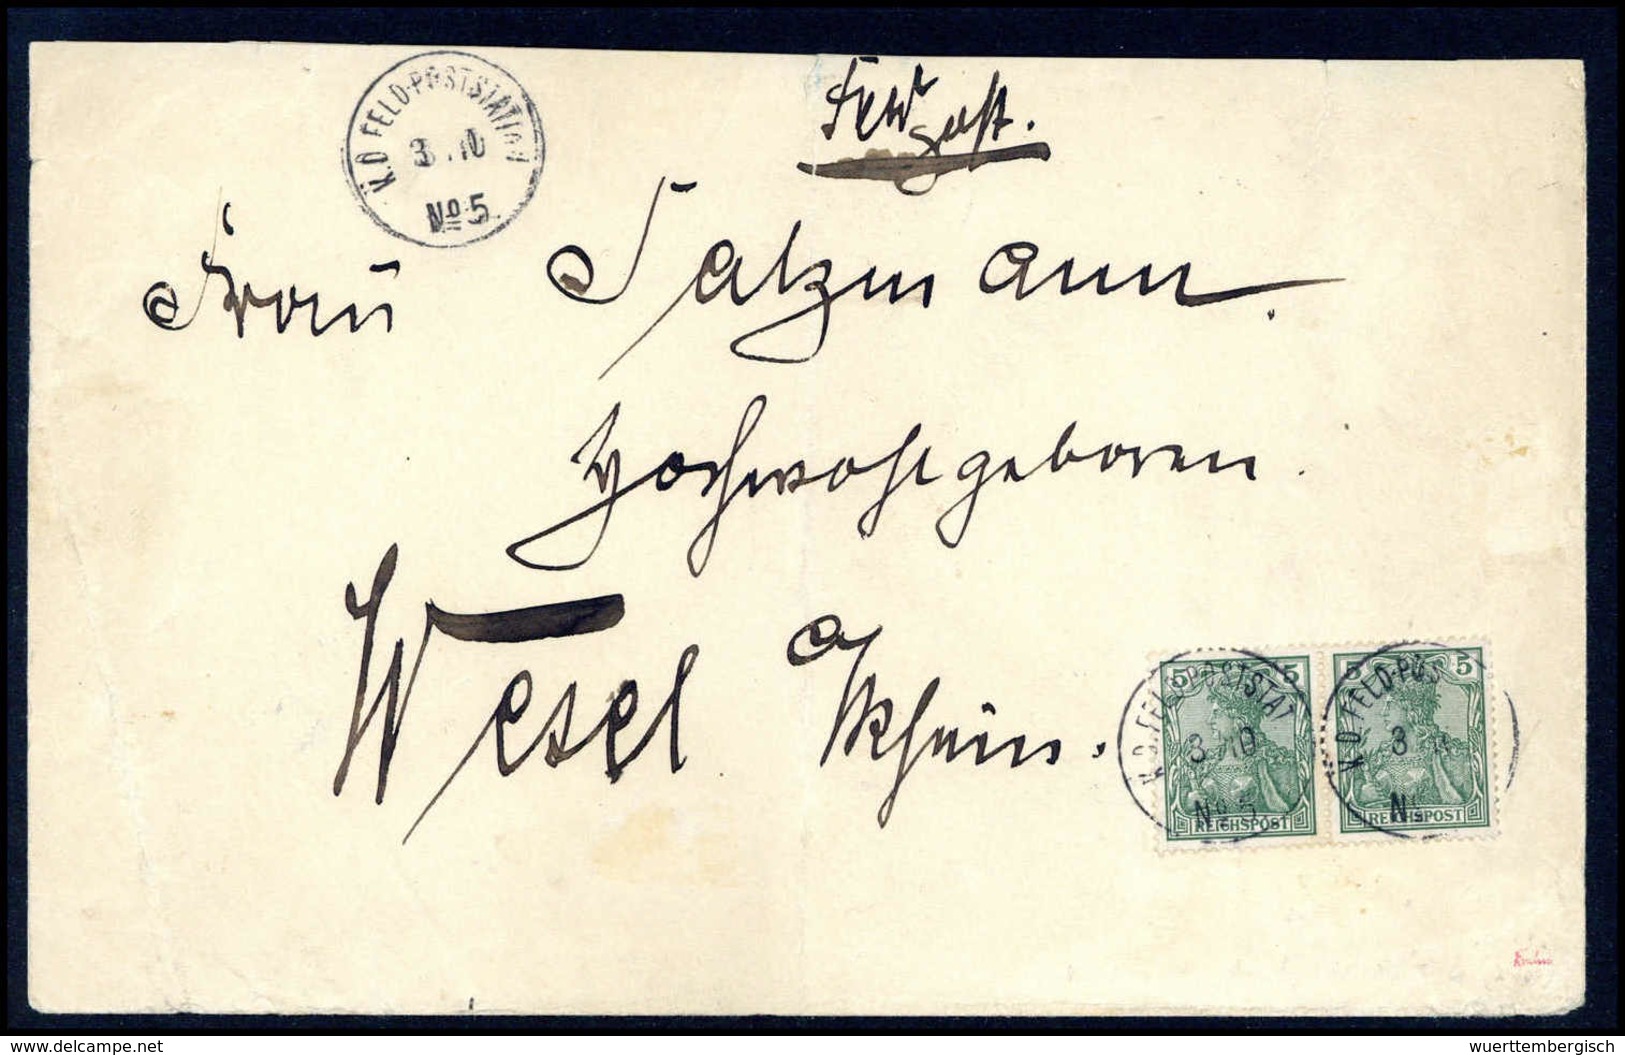 K.D FELD-POSTSTATION
3 . 10
No 5.
Feldpost.
Frau Salzmann.
Hochwohlgeboren.
Wesel a/Rhein.
5 5
K.D. FELD-POSTSTAT
3 . 10
No 5
REICHSPOST
5 5
K.D. FELD-POS
3
No
REICHSPOST
www.delcampe.net
wuerttembergisch